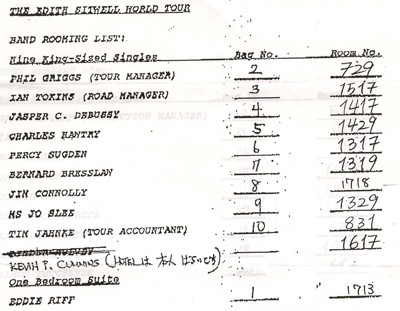 THE EDITH SITWELL WORLD TOUR
BAND ROOMING LIST!
Nine King-Sized Singles Bag No. Room No.
PHIL GRIGGS (TOUR MANAGER) 2 729
IAN TOKINS (ROAD MANAGER) 3 1517
JASPER C. DEBUSSY 4 1417
CHARLES HANTRY 5 1429
PERCY SUGDEN 6 1317
BERNARD BRESSLAN 7 1319
JIM CONNOLLY 8 1718
MS JO SLEE 9 1329
TIM JAHNKE (TOUR ACCOUNTANT) 10 831
1617
KEVIN P. CUMMINS (HOTELは 本人 はらいです)
One Bedroom Suite
EDDIE RIFF 1 1713